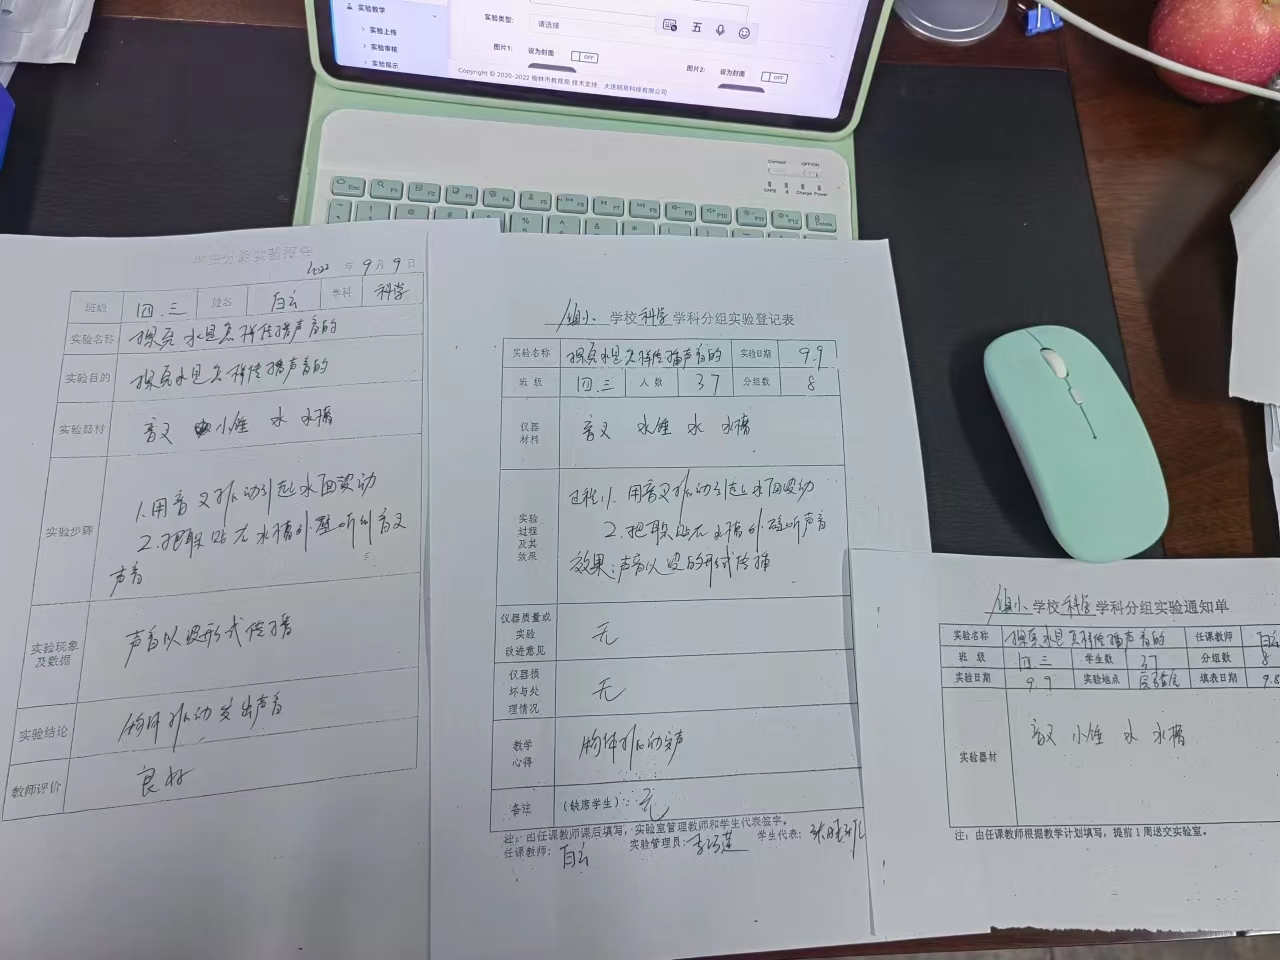 实验教学
实验上传
实验审核
实验展示
实验类型:
请选择
五
图片1:
设为封面
OFF
图片2:
设为封面
OFF
Copyright © 2020-2022 榆林市教育局 技术支持、大连明易科技有限公司
Connect OFF/ON
CAPS Charge Power
Esc F1 F2 F3 F4 F5 F6 F7 F8 F9 F10 F11 F12 Delete
学生分组实验报告
2022 年 9 月 9 日
班级 四.三 姓名 白云 学科 科学
实验名称 探究水是怎样传播声音的
实验目的 探究水是怎样传播声音的
实验器材 音叉 小锤 水 水槽
实验步骤
1.用音叉振动引起水面波动
2.把耳贴在水槽外壁听到音叉
声音
实验现象
及数据
声音以波形式传播
实验结论 物体振动发出声音
教师评价 良好
小 学校 科学 学科分组实验登记表
实验名称 探究水是怎样传播声音的 实验日期 9.9
班 级 四.三 人 数 37 分组数 8
仪器
材料
音叉 水锤 水 水槽
实验
过程
及其
效果
过程:1.用音叉振动引起水面波动
2.把耳贴在水槽外壁听声音
效果:声音以波的形式传播
仪器质量或
实验
改进意见
无
仪器损
坏与处
理情况
无
教学
心得
物体振动发声
备注 (缺席学生):无
注:由任课教师课后填写,实验室管理教师和学生代表签字。
任课教师: 白云 实验管理员: 学生代表:
小 学校 科学 学科分组实验通知单
实验名称 探究水是怎样传播声音的 任课教师 白云
班 级 四.三 学生数 37 分组数 8
实验日期 9.9 实验地点 实验室 填表日期 9.8
实验器材 音叉 小锤 水 水槽
注:由任课教师根据教学计划填写,提前1周送交实验室。